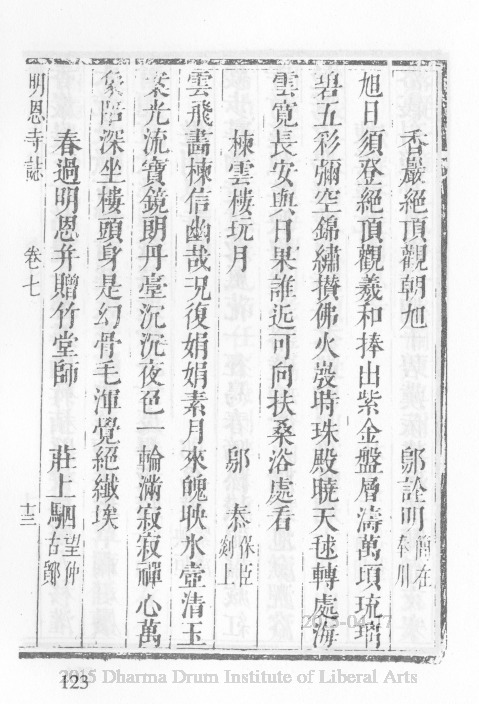 香巖絕頂觀朝旭　鄔詮明
旭日須登絕頂觀羲和捧出紫金盤層濤萬頃琉璃
碧五彩彌空錦繡攢佛火殘時珠殿曉天毬轉處海
雲寬長安與日果誰近可向扶桑浴處看
棟雲樓玩月　鄔泰保臣剡上
雲飛畵棟信幽哉況復娟娟素月來魄映氷壺清玉
案光流寶鏡朗丹臺沉沉夜色一輪滿寂寂禪心萬
象陪深坐樓頭身是幻骨毛渾覺絕纖埃
春過明恩并贈竹堂師　莊上駟望仲古鄮
明恩寺誌　卷七　十三
2015 Dharma Drum Institute of Liberal Arts
123